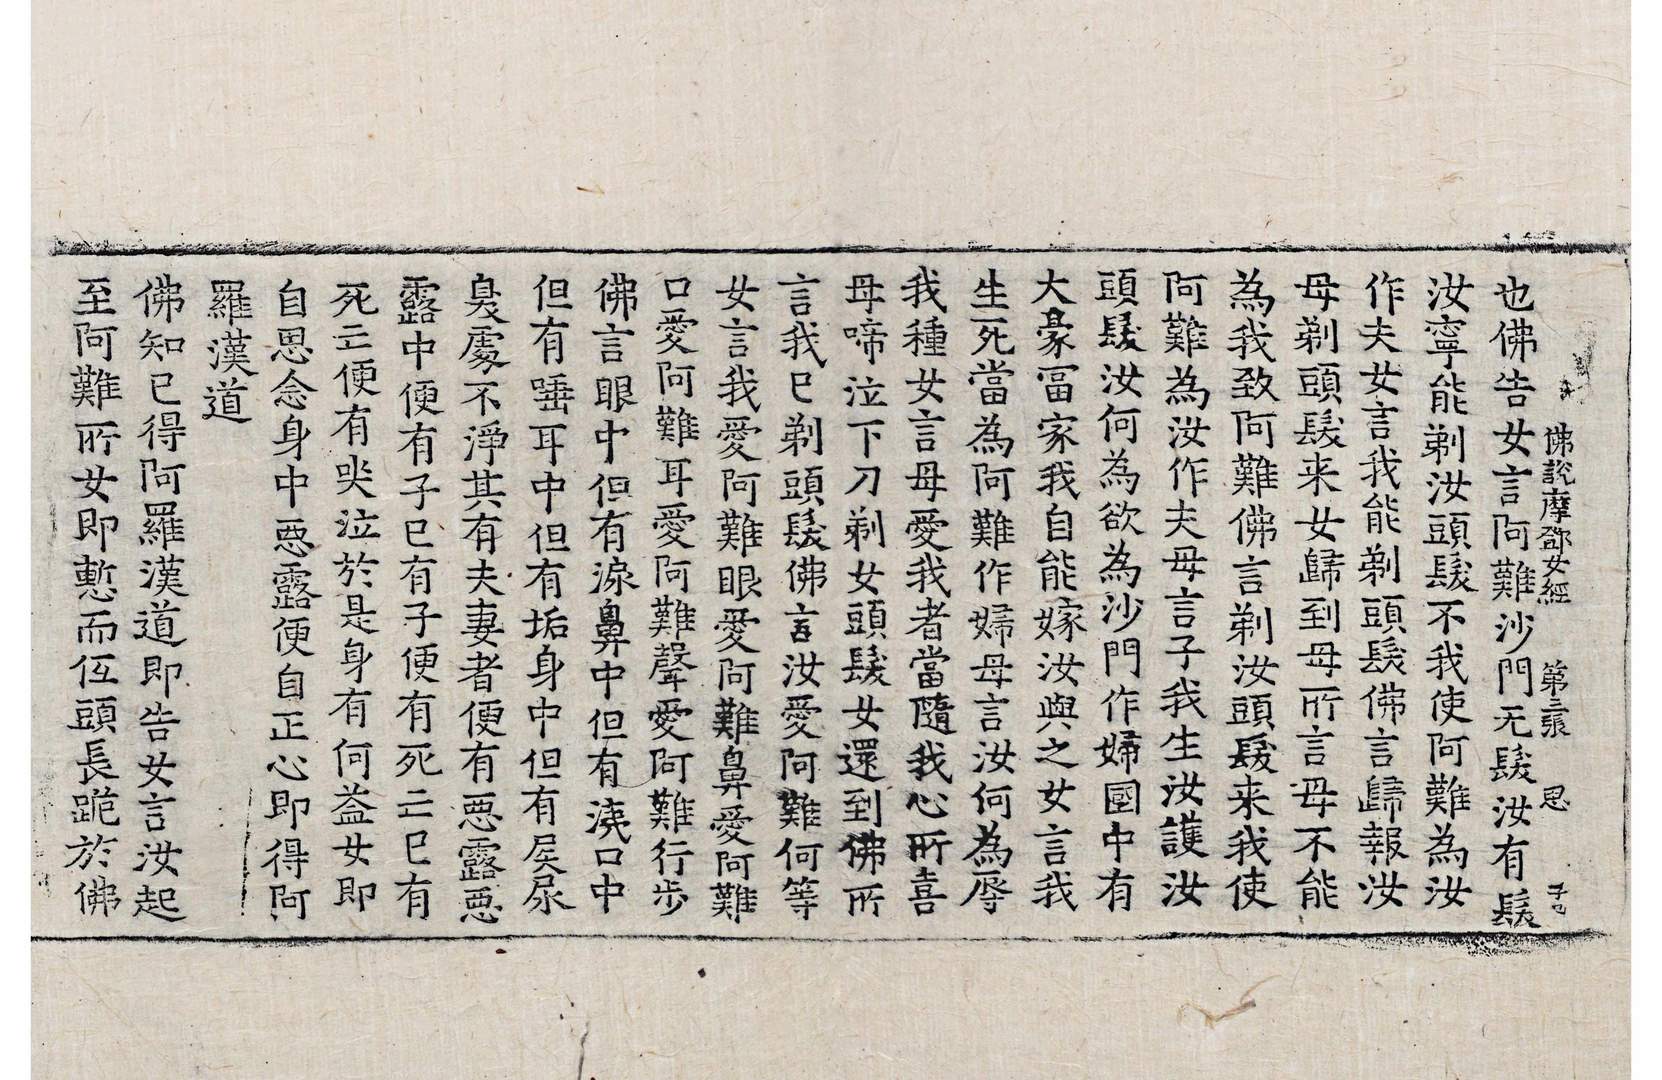 佛說摩鄧女經 第二張 思
也佛告女言阿難沙門无髮汝有髮
汝寧能剃汝頭髮不我使阿難為汝
作夫女言我能剃頭髮佛言歸報汝
母剃頭髮来女歸到母所言母不能
為我致阿難佛言剃汝頭髮来我使
阿難為汝作夫母言子我生汝護汝
頭髮汝何為欲為沙門作婦國中有
大豪冨家我自能嫁汝與之女言我
生死當為阿難作婦母言汝何為辱
我種女言母愛我者當隨我心所喜
母啼泣下刀剃女頭髮女還到佛所
言我已剃頭髮佛言汝愛阿難何等
女言我愛阿難眼愛阿難鼻愛阿難
口愛阿難耳愛阿難聲愛阿難行步
佛言眼中但有淚鼻中但有洟口中
但有唾耳中但有垢身中但有屎尿
臭處不淨其有夫妻者便有惡露惡
露中便有子已有子便有死亡已有
死亡便有哭泣於是身有何益女即
自思念身中惡露便自正心即得阿
羅漢道
佛知已得阿羅漢道即告女言汝起
至阿難所女即慙而低頭長跪於佛